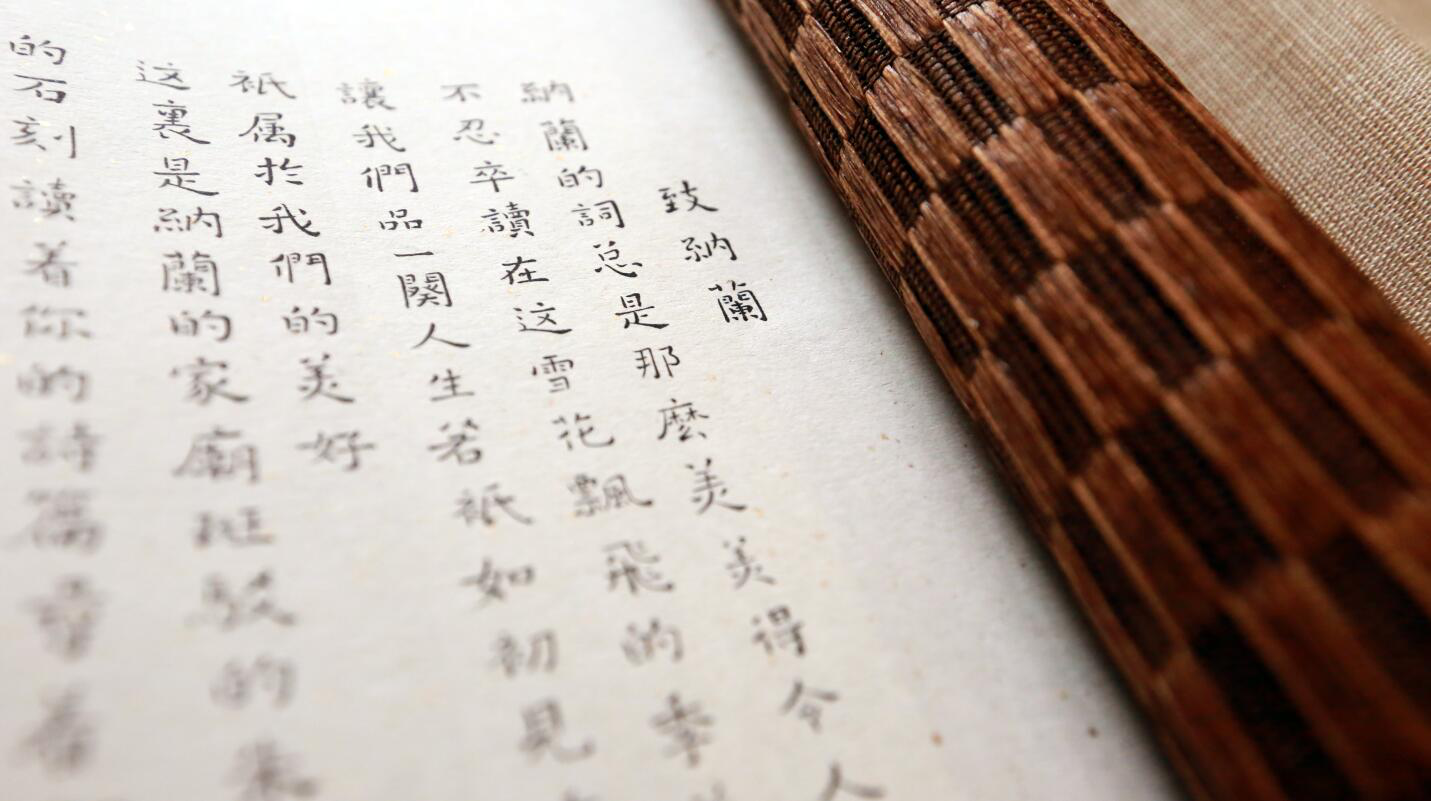 致納蘭
納蘭的詞总是那麽美美得令人
不忍卒讀在这雪花飄飛的季
讓我們品一闋人生若祇如初見
祇属於我們的美好
这裏是納蘭的家廟斑駁的
的石刻讀着你的詩篇